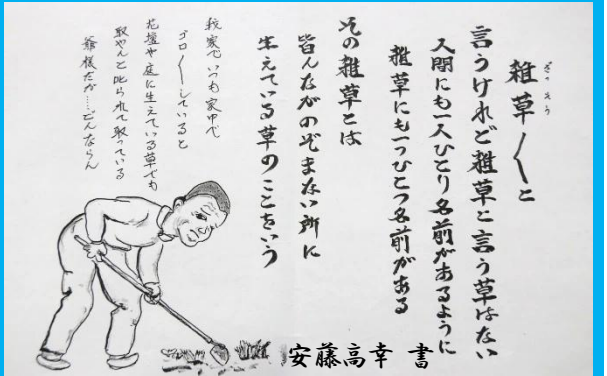 ざっそう
雑草〳〵と
言うけれど雑草と言う草はない
人間にも一人ひとり名前があるように
雑草にも一つひとつ名前がある
その雑草とは
皆んながのぞまない所に
生えている草のことをいう
我家でいつも家中で
ゴロ〳〵していると
花壇や庭に生えている草でも
取やんと叱られて取っている
爺様だが……どんならん
安藤高幸 書